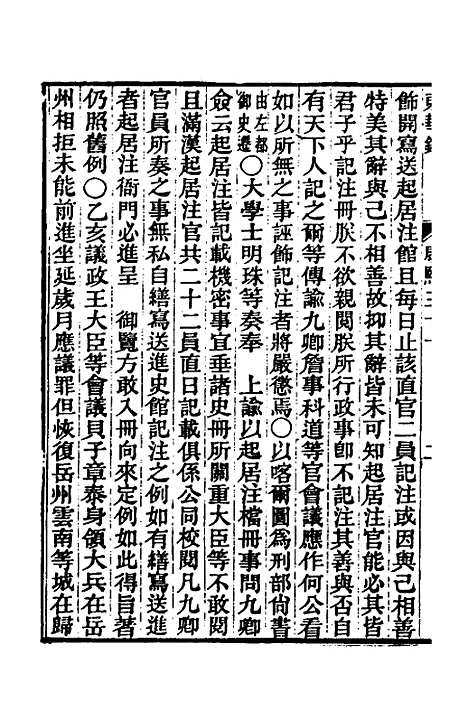 飾開寫送起居注館且每日止該直官二員記注或因與己相善
特美其辭與己不相善故抑其辭皆未可知起居注官能必其皆
君子乎記注冊朕不欲親閱朕所行政事卽不記注其善與否自
有天下人記之爾等傳諭九卿詹事科道等官會議應作何公看
如以所無之事誣飾記注者將嚴懲焉〇以喀爾圖爲刑部尙書
由左都
御史遷〇大學士明珠等奏奉　上諭以起居注檔冊事問九卿
僉云起居注皆記載機密事宜垂諸史冊所關重大臣等不敢閱
且滿漢起居注官共二十二員直日記載俱係公同校閱凡九卿
官員所奏之事無私自繕寫送進史館記注之例如有繕寫送進
者起居注衙門必進呈　御覽方敢入冊向來定例如此得旨著
仍照舊例〇乙亥議政王大臣等會議貝子章泰身領大兵在岳
州相拒未能前進坐延歲月應議罪但恢復岳州雲南等城在歸